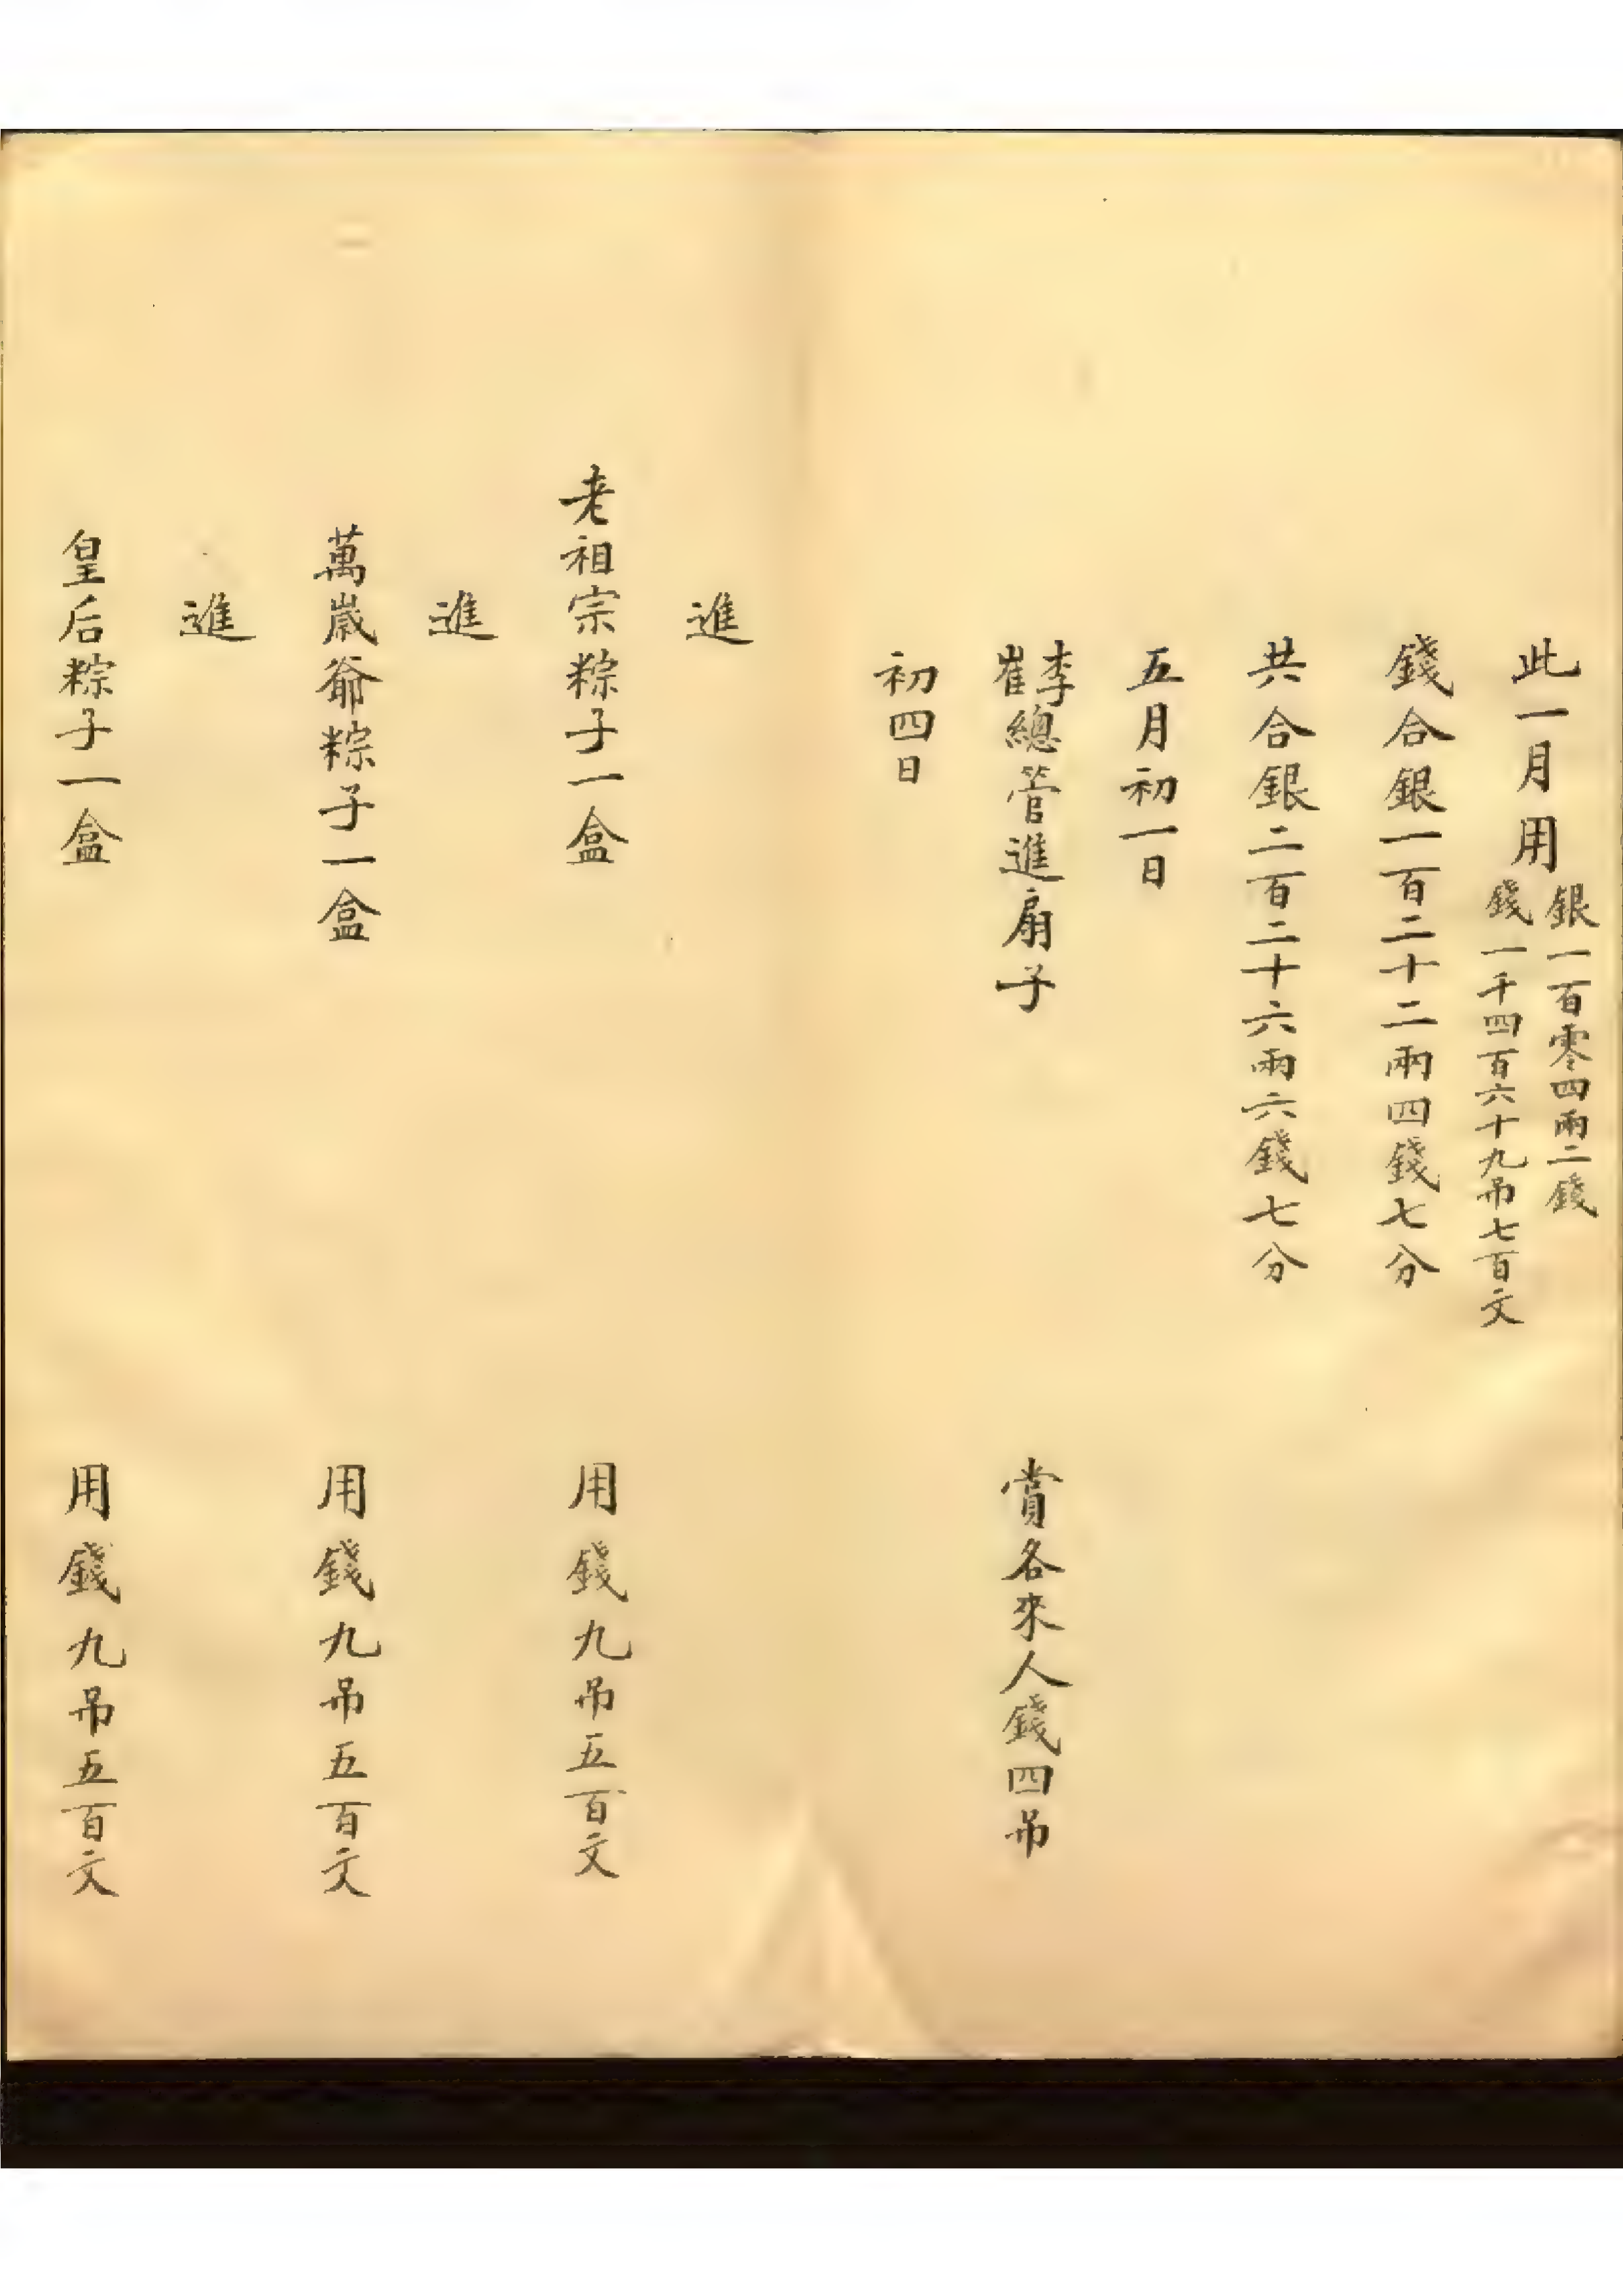 此一月用
銀一百零四兩二錢
錢一千四百六十九吊七百文
錢合銀一百二十二兩四錢七分
共合銀二百二十六兩六錢七分
五月初一日
李崔總管進扇子 賞各來人錢四吊
初四日
進
老祖宗粽子一盒 用錢九吊五百文
進
萬歲爺粽子一盒 用錢九吊五百文
進
皇后粽子一盒 用錢九吊五百文